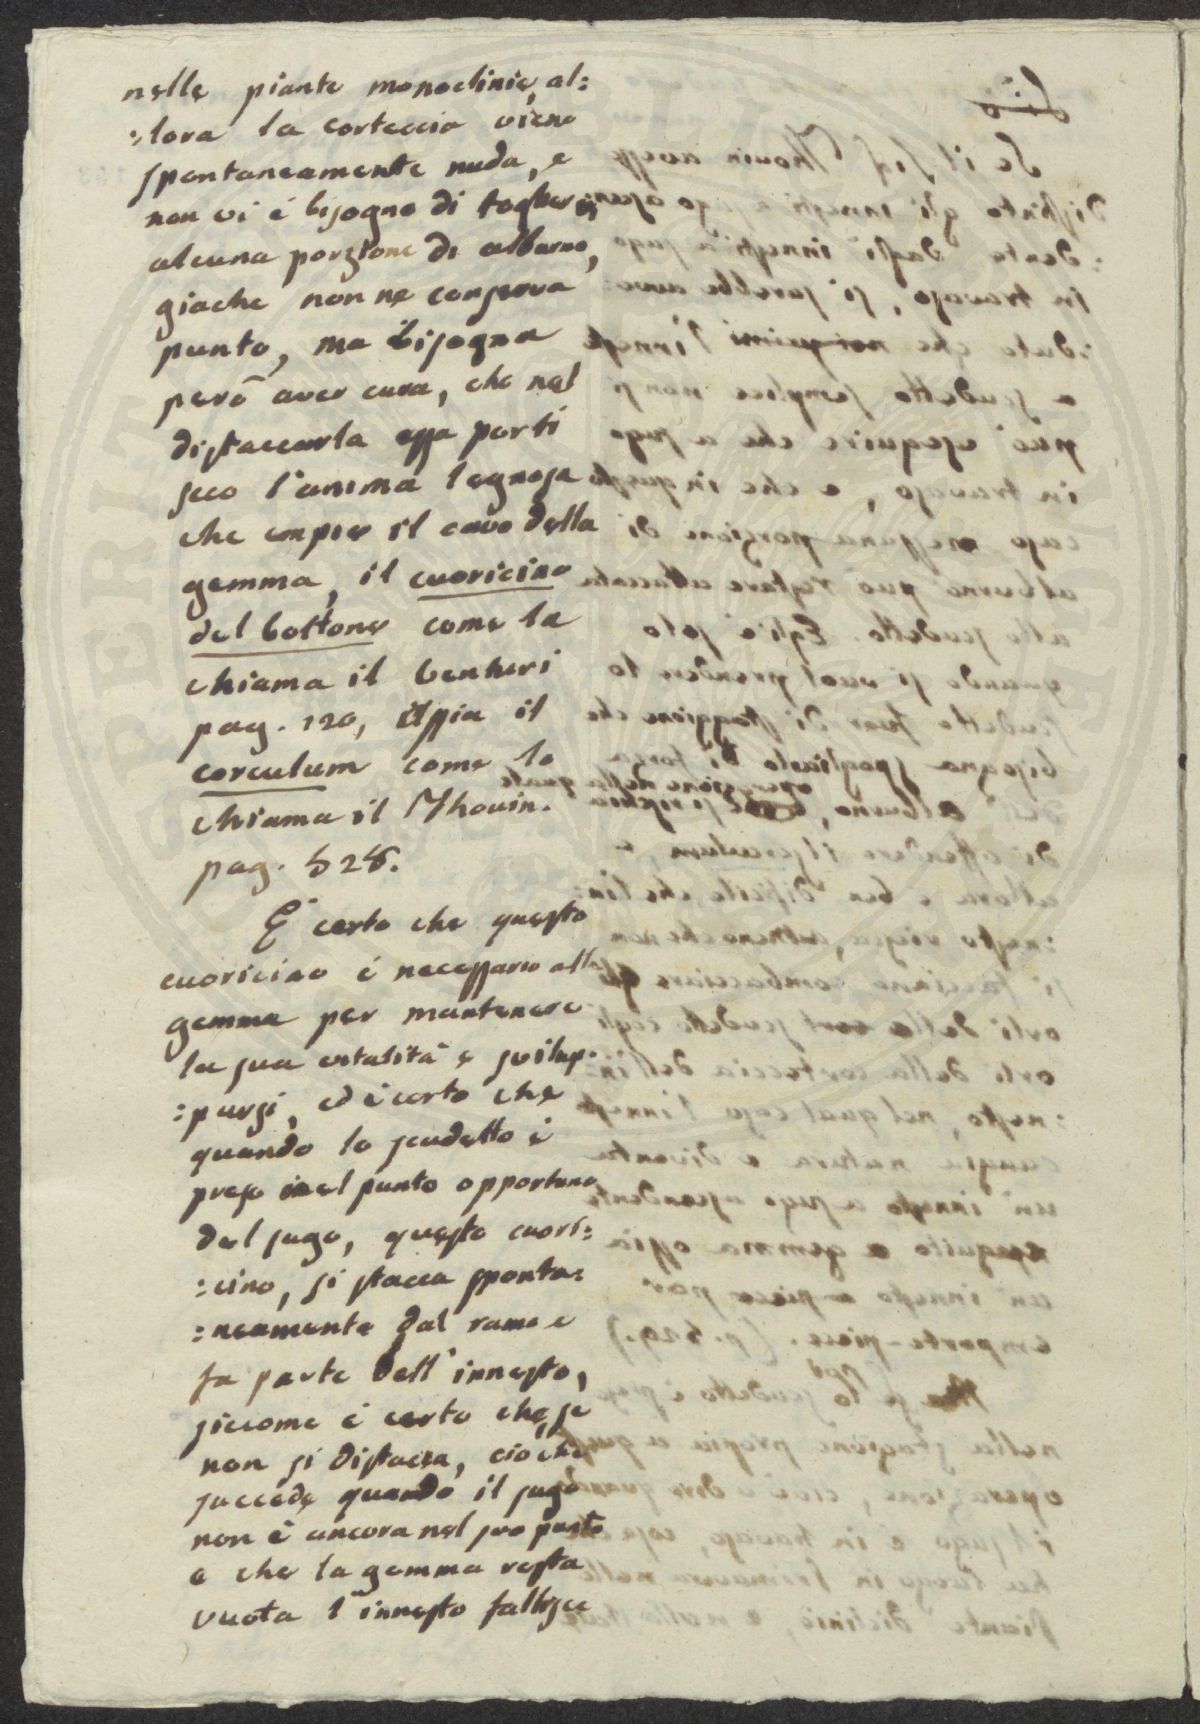 nelle piante monoclinie, al=
=lora la corteccia viene
spontaneamente nuda, e
non vi é bisogno di togliere
alcuna porzione di alburno,
giache non ne conserva
punto, ma bisogna
però aver cura, che nel
distaccarla essa porti
seco l'anima legnosa
che empie il cavo della
gemma, il cuoricino
del bottone come la
chiama il
pag. 120, ossia il
corculum come lo
chiama il Thouin.
pag. 528.
É certo che questo
cuoricino é necessario alla
gemma per mantenere
la sua vitalità e svilup=
=parsi, ed é certo che
quando lo scudetto é
preso nel punto opportuno
del sugo, questo cuori=
=cino, si stacca sponta=
=neamente dal ramo e
fa parte dell'innesto,
siccome é certo che, se
non si distacca, ciò che
succede quando il sugo
non è ancora nel suo punto
e che la gemma resta
vuota l'innesto fallisce